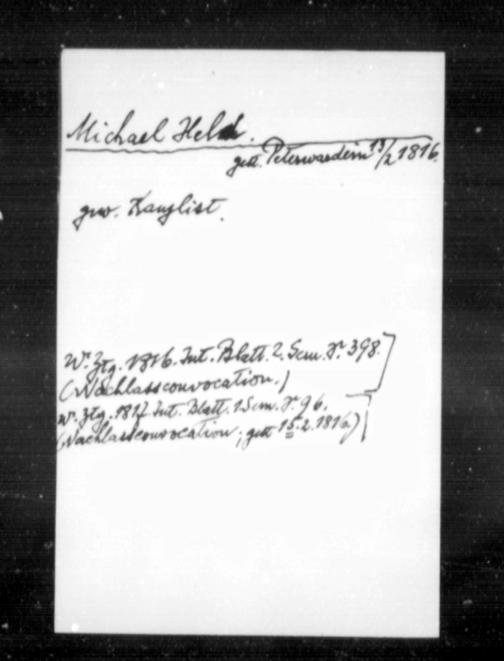 Michael Held.
gest. Peterwardein 13/2 1816.
gew. Kanzlist.
Wr. Ztg. 1816. Int. Blatt. 2. Sem. S. 398.
(Nachlassconvocation.)
Wr. Ztg. 1817 Int. Blatt. 1 Sem. S. 96.
(Nachlassconvocation; gest 15.2.1816)